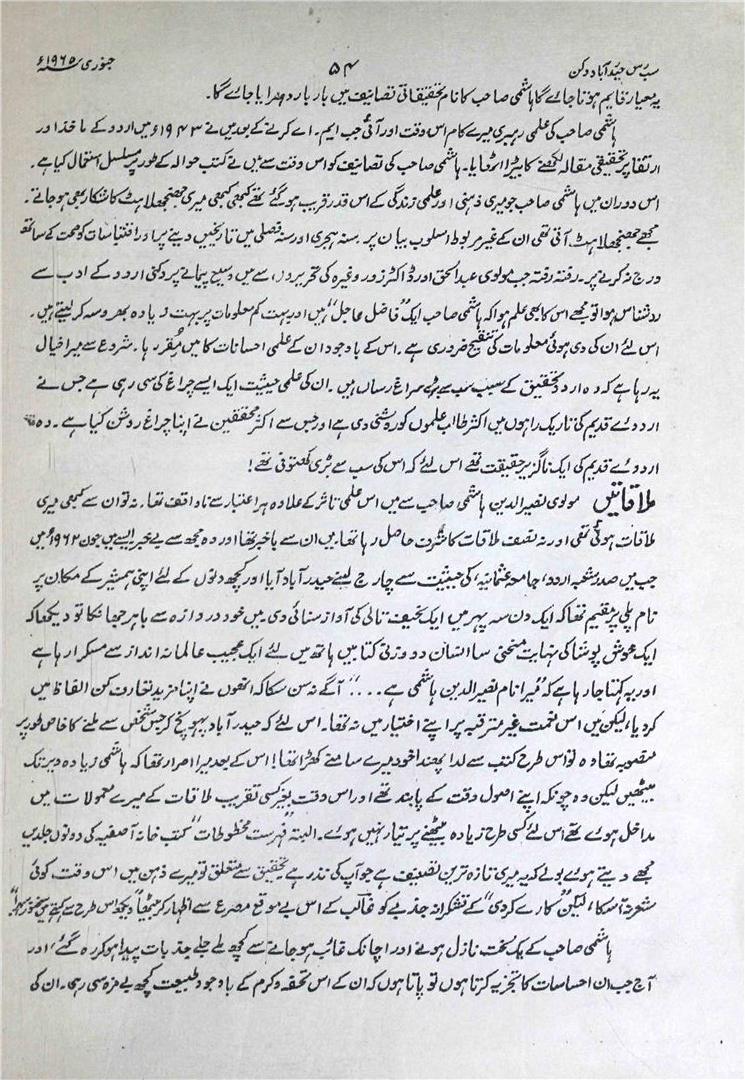 سب رس حیدرآباد دکن ۵۴ جنوری سنہ ۱۹۶۵ء
یہ معیار قایم ہوتا جائے گا ہاشمی صاحب کا نام تحقیقاتی تصانیف میں بار بار دہرایا جائے گا۔
ہاشمی صاحب کی علمی رہبری میرے کام اس وقت اور آئی جب ایم۔ اے کرنے کے بعد میں نے ۱۹۴۳ء میں اردو کے ماخذ اور
ارتقا پر تحقیقی مقالہ لکھنے کا بیڑا اٹھایا۔ ہاشمی صاحب کی تصانیف کو اس وقت سے میں نے کتب حوالہ کے طور پر مسلسل استعمال کیا ہے۔
اس دوران میں ہاشمی صاحب جو میری ذہنی اور علمی زندگی کے اس قدر قریب ہو گئے تھے کبھی کبھی میری جھنجھلاہٹ کا شکار بھی ہو جاتے۔
مجھے جھنجھلاہٹ آتی تھی ان کے غیر مربوط اسلوب بیان پر۔ سنہ ہجری اور سنہ فصلی میں تاریخیں دینے پر اور اقتباسات کو صحت کے ساتھ
درج نہ کرنے پر۔ رفتہ رفتہ جب مولوی عبدالحق اور ڈاکٹر زور وغیرہ کی تحریروں سے میں وسیع پیمانے پر دکنی اردو کے ادب سے
روشناس ہوا تو مجھے اس کا بھی علم ہوا کہ ہاشمی صاحب ایک "فاضل عاجل" ہیں اور بہت کم معلومات پر بہت زیادہ بھروسہ کر لیتے ہیں۔
اس لئے ان کی دی ہوئی معلومات کی تنقیح ضروری ہے۔ اس کے باوجود ان کے علمی احسانات کا میں مُقِر رہا۔ شروع سے میرا خیال
یہ رہا ہے کہ وہ اردو تحقیق کے سبب سب سے بڑے سراغ رساں ہیں۔ ان کی علمی حیثیت ایک ایسے چراغ کی سی رہی ہے جس نے
اردوے قدیم کی تاریک راہوں میں اکثر طالب علموں کو روشنی دی ہے اور جس سے اکثر محققین نے اپنا چراغ روشن کیا ہے۔ وہ
اردوے قدیم کی ایک ناگزیر حقیقت تھے اس لئے کہ اس کی سب سے بڑی کھتونی تھے!
ملاقاتیں مولوی نصیرالدین ہاشمی صاحب سے میں اس علمی تاثر کے علاوہ ہر اعتبار سے ناواقف تھا۔ نہ تو ان سے کبھی میری
ملاقات ہوئی تھی اور نہ نصف ملاقات کا شرف حاصل رہا تھا۔ میں ان سے باخبر تھا اور وہ مجھ سے بے خبر ایسے میں جون ۱۹۶۲ء میں
جب میں صدر شعبہ اردو، جامعہ عثمانیہ، کی حیثیت سے چارج لینے حیدرآباد آیا اور کچھ دنوں کے لئے اپنی ہمشیر کے مکان پر
نام پلی پر مقیم تھا کہ ایک دن سہ پہر میں ایک نحیف تالی کی آواز سنائی دی۔ میں خود دروازہ سے باہر جھانکا تو دیکھا کہ
ایک خوش پوشا کی نہایت منحنی سا انسان دو وزنی کتابیں ہاتھ میں لئے ایک عجیب عالمانہ انداز سے مسکرا رہا ہے
اور یہ کہتا جا رہا ہے کہ "میرا نام نصیرالدین ہاشمی ہے ...." آگے نہ سن سکا کہ انھوں نے اپنا مزید تعارف کن الفاظ میں
کرایا، لیکن میں اس نعمت غیر مترقبہ پر اپنے اختیار میں نہ تھا۔ اس لئے کہ حیدرآباد پہونچ کر جس شخص سے ملنے کا خاص طور پر
منصوبہ تھا وہ تو اس طرح کتب سے لدا پھندا خود میرے سامنے کھڑا تھا! اس کے بعد میرا اصرار تھا کہ ہاشمی زیادہ دیر تک
بیٹھیں لیکن وہ چونکہ اپنے اصول وقت کے پابند تھے اور اس وقت بغیر کسی تقریب ملاقات کے میرے معمولات میں
مداخل ہوے تھے اس لئے کسی طرح زیادہ بیٹھنے پر تیار نہیں ہوے۔ البتہ "فہرست مخطوطات" کتب خانہ آصفیہ کی دونوں جلدیں
مجھے دیتے ہوے بولے کہ یہ میری تازہ ترین تصنیف ہے جو آپ کی نذر ہے تحقیق سے متعلق تو میرے ذہن میں اس وقت کوئی
شعر نہ آ سکا، لیکن "کارے کردی" کے تشکرانہ جذبے کو غالب کے اس بے موقع مصرع سے اظہار کر بیٹھا "دیکھو اس طرح سے کہتے ہیں سخنور سہرا"
ہاشمی صاحب کے یک لخت نازل ہونے اور اچانک غائب ہو جانے سے کچھ ملے جلے جذبات پیدا ہو کر رہ گئے، اور
آج جب ان احساسات کا تجزیہ کرتا ہوں تو پاتا ہوں کہ ان کے اس تحفہ و کرم کے باوجود طبیعت کچھ بے مزہ سی رہی۔ ان کی